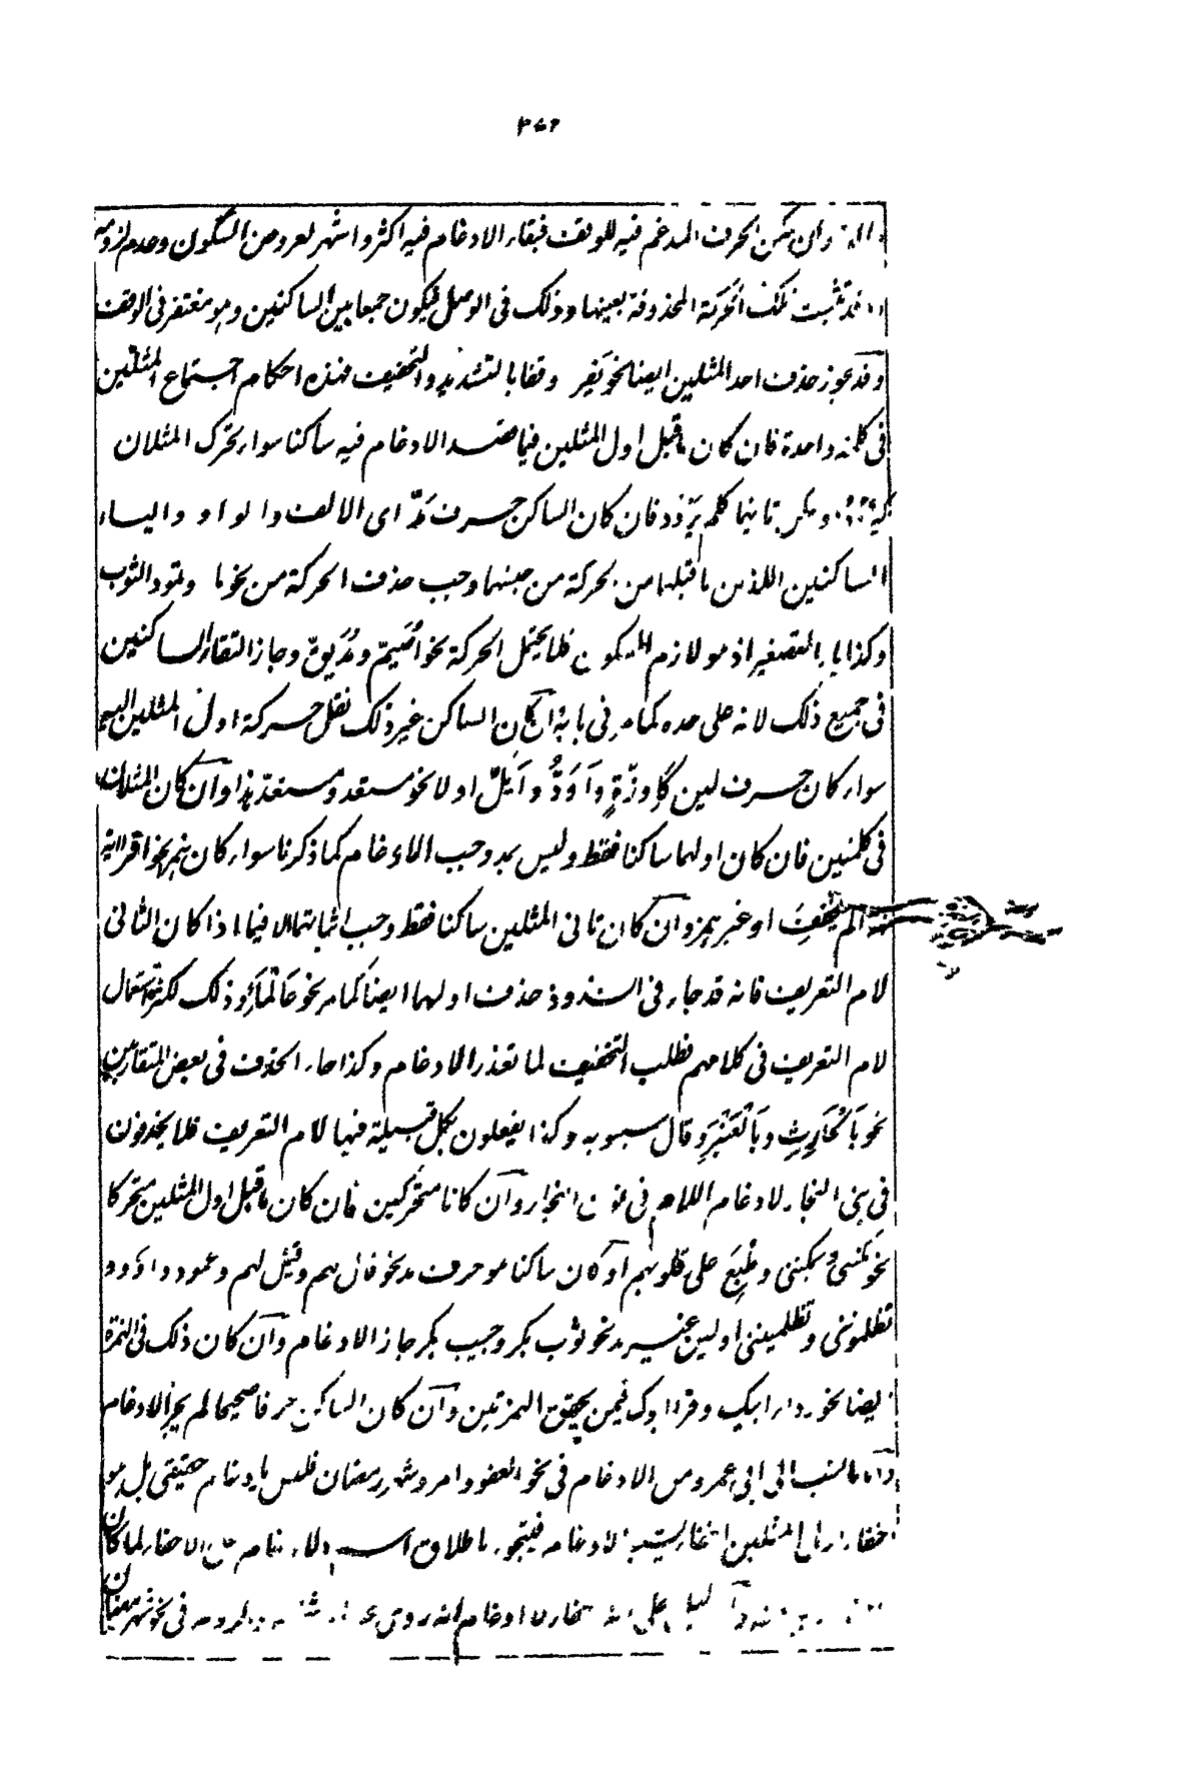 ٣٤٢
وان سكن الحرف المدغم فيه للوقف فبقاء الادغام فيه اكثر واشهر لعروض السكون وعدم لزومه
قد تثبت تلك الحركة المحذوفة بعينها وذلك فى الوصل فيكون جمعا بين الساكنين وهو مغتفر فى الوقف
وقد يجوز حذف احد المثلين ايضا نحو يَفِر وقفا بالتشديد والتخفيف فهذه احكام اجتماع المثلين
فى كلمة واحدة فان كان ما قبل اول المثلين فيما قصد الادغام فيه ساكنا سواء تحرك المثلان
كيردد وسكن ثانيهما كلم يردد فان كان الساكن حرف مدّ اى الالف والواو والياء
الساكنين اللذين ما قبلهما من الحركة من جنسهما وجب حذف الحركة من نحو ما وتمود الثوب
وكذا ياء التصغير اذ هو لازم السكون فلا يحتمل الحركة نحو اُصَيمّ ومُدَيقّ وجاز التقاء الساكنين
فى جميع ذلك لانه على حده كما مر فى بابه وان كان الساكن غير ذلك نقل حركة اول المثلين اليه
سواء كان حرف لين كاِوزّةٍ وَاَوَدُّ واَيَلّ اولا نحو مستعد ومستعدّ هذا وان كان المثلان
فى كلمتين فان كان اولهما ساكنا فقط وليس بمد وجب الادغام كما ذكرنا سواء كان بهمز نحو اقرا اية
الم يخفف او غير همز وان كان ثانى المثلين ساكنا فقط وجب اثباتهما الا فيما اذا كان الثانى
لام التعريف فانه قد جاء فى الشذوذ حذف اولهما ايضا كما مر نحو عَالْمَاءِ وذلك لكثرة استعمال
لام التعريف فى كلامهم فطلب التخفيف لما تعذر الادغام وكذا جاء الحذف فى بعض المتقاربين
نحو بَالْحَارِثِ وبَالْعَنْبَرِ وقال سيبويه وكذا يفعلون بكل قبيلة فيها لام التعريف فلا يحذفون
فى بنى النجار لادغام اللام فى نون النجار وان كانا متحركين فان كان ما قبل اول المثلين متحركا
نحو مكننى ويمكننى وطُبِعَ على قلوبهم او كان ساكنا هو حرف مد نحو قال لهم وقيل لهم وعمود داوود
تظلموننى وتظلميننى اولين غير مد نحو ثوب بكر وجيب بكر جاز الادغام وان كان ذلك فى الهمزة
ايضا نحو رداء ابيك وقرا ابوك فيمن يحقق الهمزتين وان كان الساكن حرفا صحيحا لم يجز الادغام
واما ما نسب الى ابى عمرو من الادغام فى نحو العفو وامر وشهر رمضان فليس بادغام حقيقى بل هو
اخفاء اول المثلين اخفاء يشبه الادغام فيتجوز باطلاق اسم الادغام على الاخفاء لما كان
والدليل على انه اخفاء لا ادغام انه روى فى نحو شهر رمضان